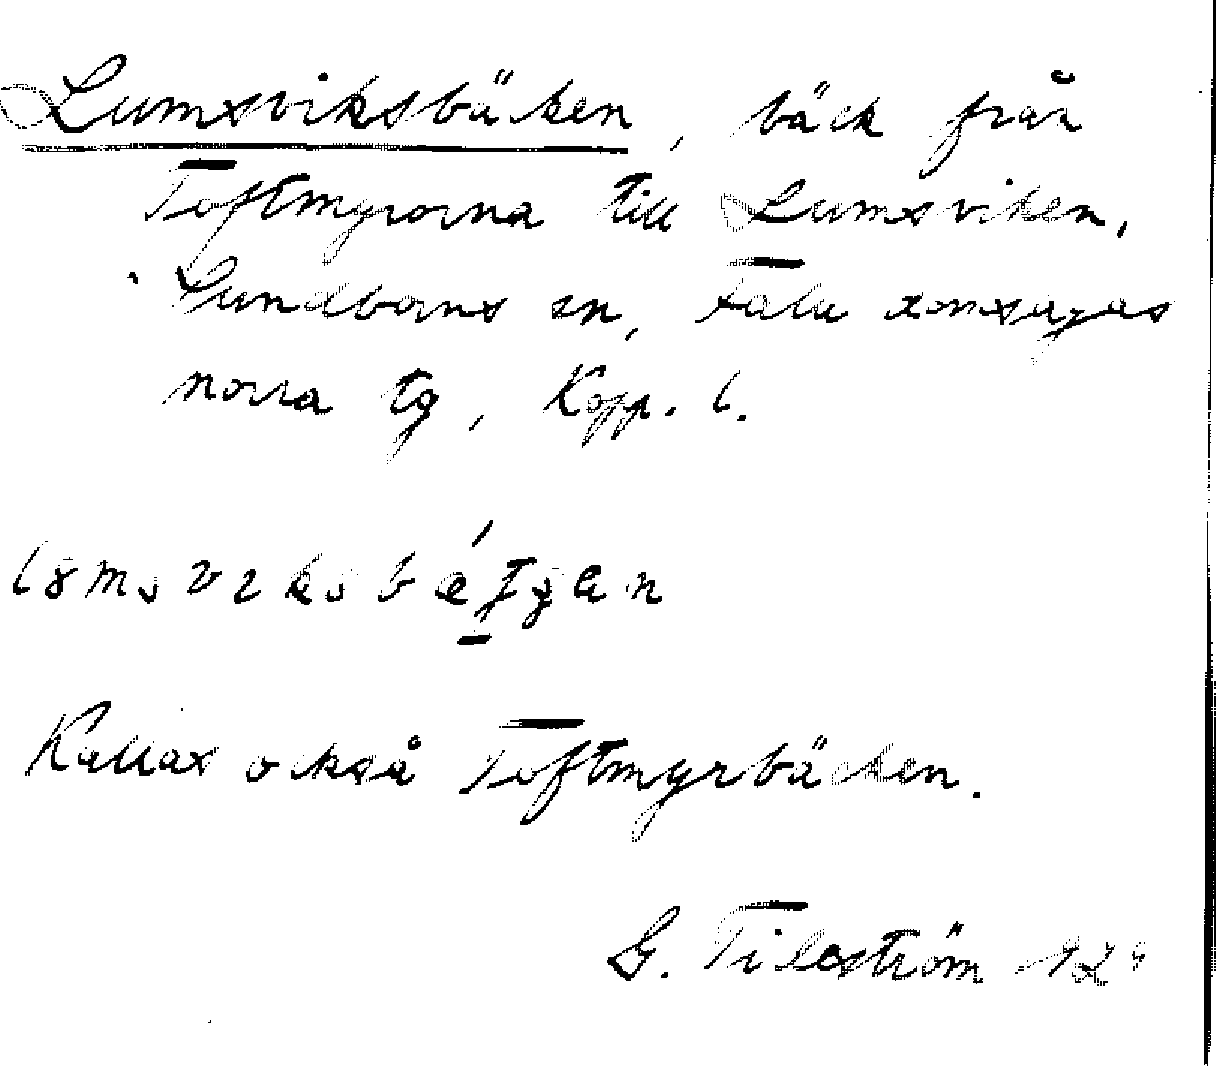 Lumsviksbäcken, bäck från
Toftmyrorna till Lumsviken,
Sundborns sn, Falu domsagas
norra tg, Kopp. l.
Kallas också Toftmyrbäcken.
G. Tilleström